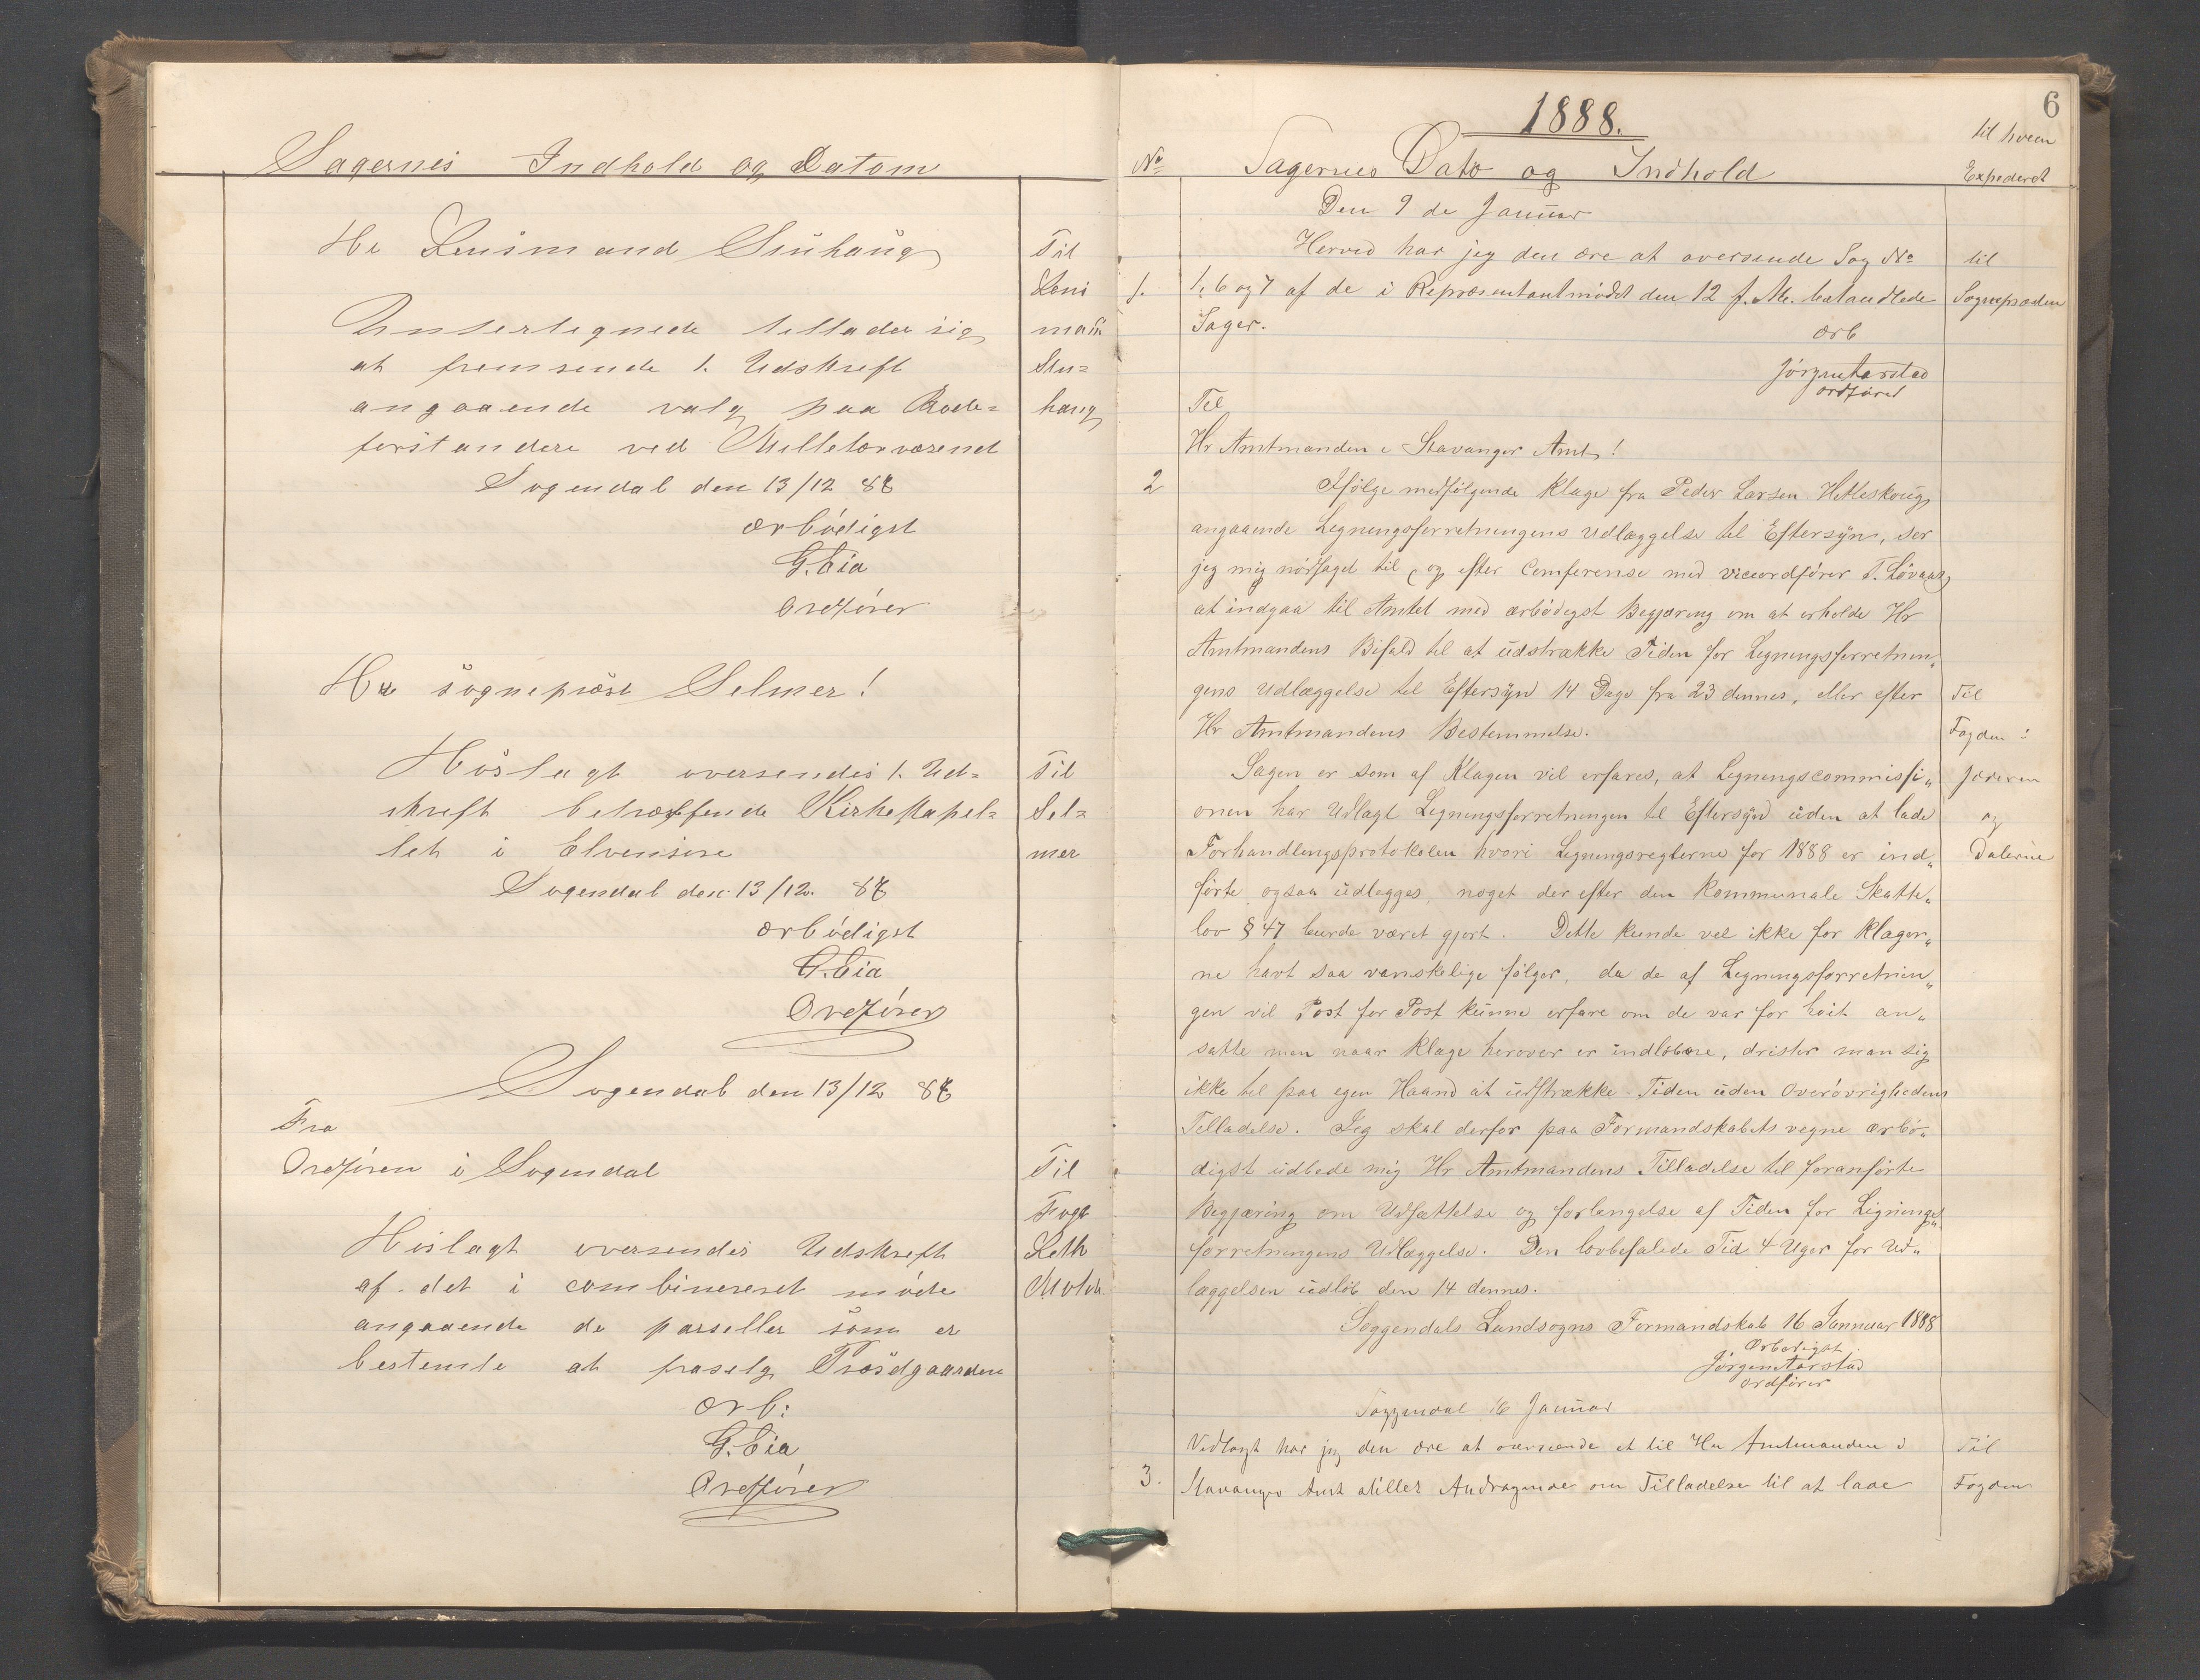 Sagernes Indhold og Datom
Hr Lensmand Stuhaug
Til
Lens
mand
Stu=
haug
Undertegnede tillader sig
at fremsende 1. Udskreft
angaaende valg paa Rode=
forstandere ved Milletærvæsenet
Sogendal den 13/12 87
ærbödigst
G. Eia
Ordförer
Hr sogneprest Selmer!
Höslagt oversendes 1. Ud=
skreft betræffende Kirkekapel=
let i Elvensire
Til
Sel=
mer
Sogendal den 13/12. 87
ærbödigst
G. Eia
Ordförer
Sogendal den 13/12 87
Fra
Ordfören i Sogendal
Til
Fogt
Leth
Motch
Hoslagt oversendes Udskreft
af det i combineret möde
angaaende de parseller som er
bestemte at fraselg Præsdgaarden
ærb:
G. Eia
Ordförer
6
1888.
No Sagernes Dato og Indhold
til hvem
Expederet
Den 9 de Januar
Herved har jeg den ære at oversende Sag No
til
1. 1, 6 og 7 af de i Repræsentantmödet den 12 f. M. behandlede
Sogneprsten
Sager.
ærb
Jörgen Aarstad
ordförer
Til
Hr Amtmanden i Stavanger Amt!
2 Ifölge medfölgende Klage fra Peder Larsen Hetleskoug
angaaende Legningsforretningens Udlæggelse til Eftersyn, ser
jeg mig nödsaget til (og efter Conferense med viceordförer T. Lövaas)
at indgaa til Amtet med ærbödigst Begjæring om at erholde Hr
Amtmandens Bifald til at udstrække Tiden for Legningsforretnin„
gens Udlæggelse til Eftersyn 14 Dage fra 23 dennes, eller efter
Til
Hr Amtmandens Bestemmelse.
Fogden i
Sagen er som af Klagen vil erfares, at Legningscommissi„
Jæderen
onen har Udlagt Legningsforretningen til Eftersyn uden at lade
og
Forhandlingsprotokolen hvori Legningsreglerne for 1888 er ind„
Dalerne
förte ogsaa udlegges, noget der efter den Kommunale Skatte„
lov § 47 burde været gjort. Dette kunde vel ikke for Klager„
ne havt saa vanskelige fölger, da de af Legningsforretnin„
gen vil Post for Post kunne erfare om de var for höit an„
satte men naar Klage herover er indlöbne, drister man sig
ikke til paa egen Haand at udstrække Tiden uden Overövrighedens
Telladelse. Jeg skal derfor paa Formandskabets vegne ærbö„
digst udbede mig Hr Amtmandens Tilladelse til foranförte
Begjæring om Udsættelse og forlængelse af Tiden for Ligninges„
forretningens Udlæggelse. Den lovbefalede Tid 4 Uger for Ud„
læggelsen udlöb den 14 dennes.
Soggendals Landsogns Formandskab 16 Januar 1888
Ærbödigst
Jörgen Aarstad
ordförer
Soggendal 16 Januar
Vedlagt har jeg den ære at oversende et til Hr Amtmanden i
Til
3. Stavanger Amt stillet Andragende om Tilladelse til at lade
Fogden